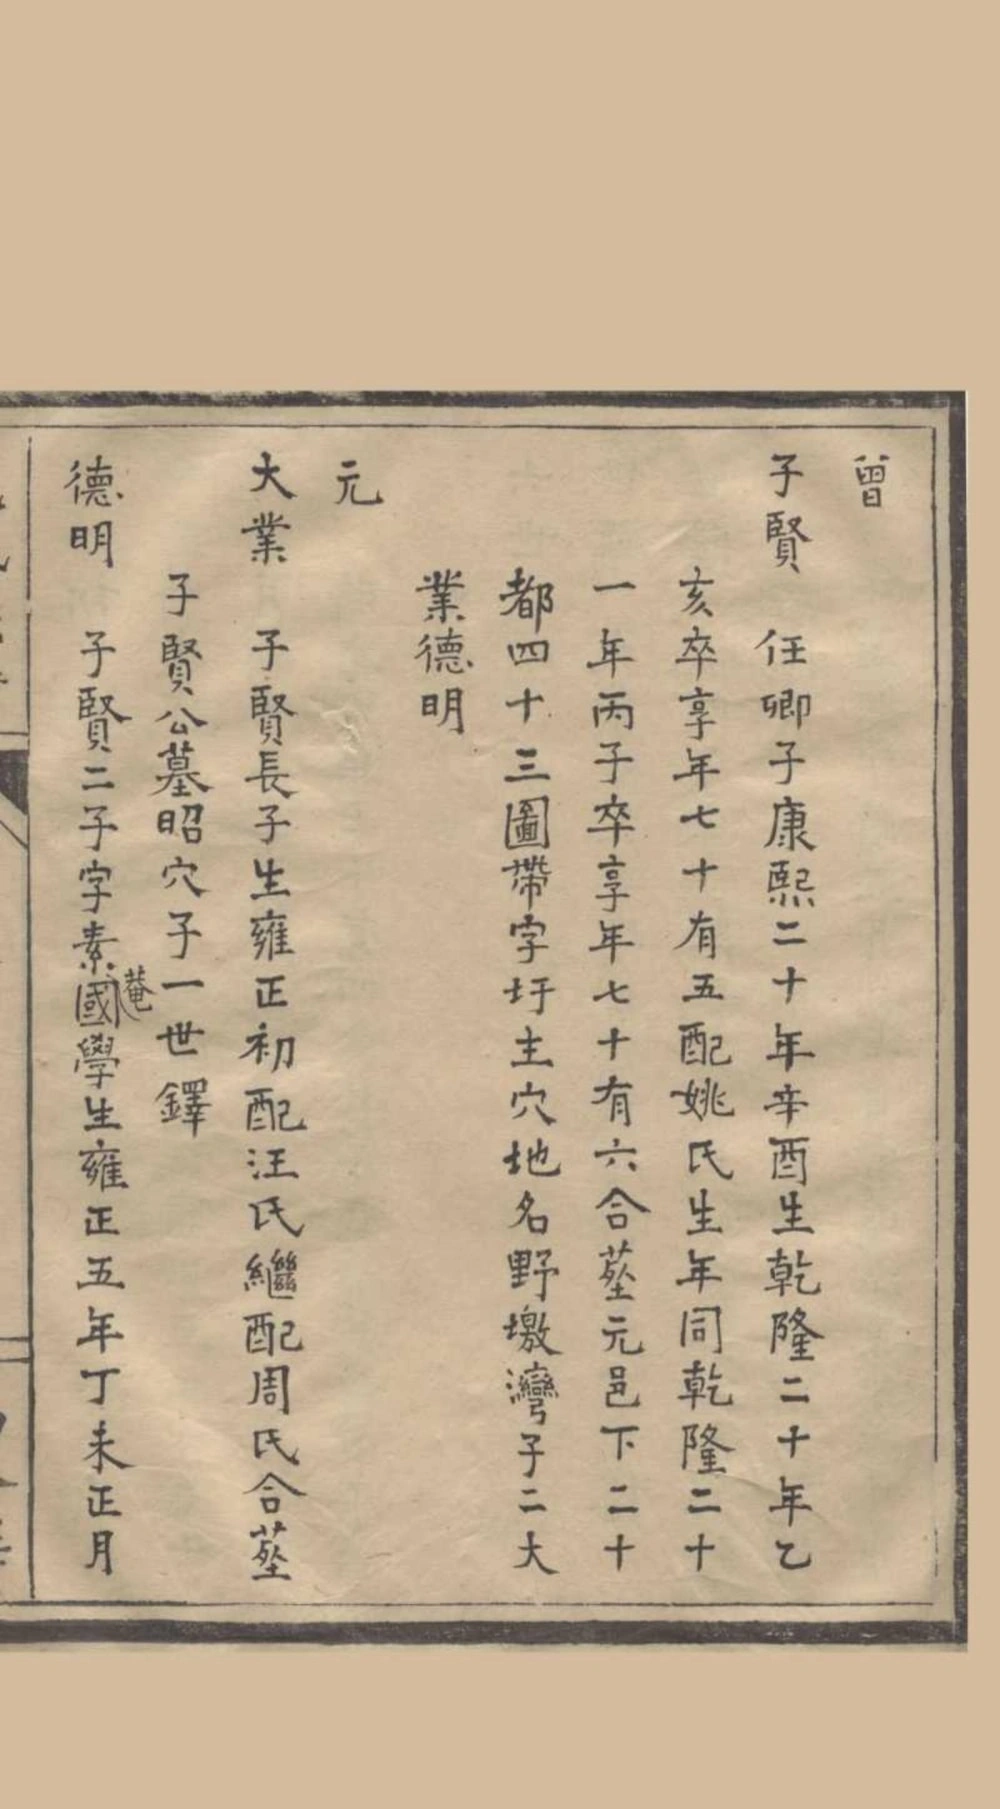 曾
子賢　任卿子康熙二十年辛酉生乾隆二十年乙
亥卒享年七十有五配姚氏生年同乾隆二十
一年丙子卒享年七十有六合塟元邑下二十
都四十三圖帶字圩主穴地名野墩灣子二大
業德明
元
大業　子賢長子生雍正初配汪氏繼配周氏合塟
子賢公墓昭穴子一世鐸
德明　子賢二子字素菴國學生雍正五年丁未正月